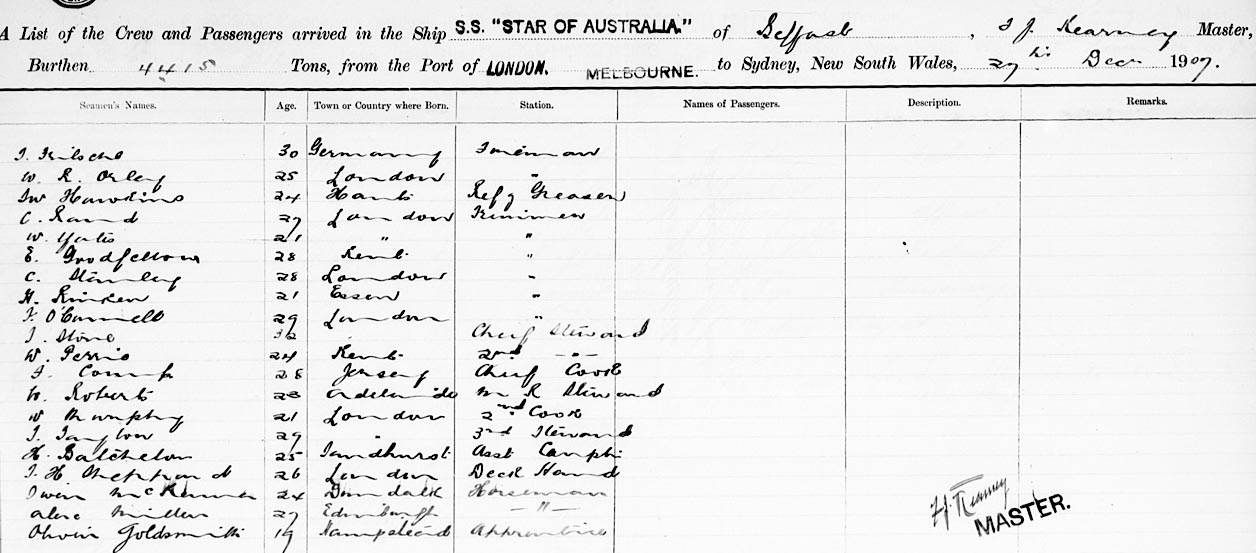 A List of the Crew and Passengers arrived in the Ship S.S. "STAR OF AUSTRALIA." of Belfast, T J. Kearney Master,
Burthen 4415 Tons, from the Port of LONDON. MELBOURNE. to Sydney, New South Wales, 27th Decr 1907.
Seamen's Names. Age. Town or Country where Born. Station. Names of Passengers. Description. Remarks.
30 Germany Fireman
W. R. Orley 25 London "
Hawkins 24 Hants Refg Greaser
C. Rand 27 London Firemen
W. Yates 21 " "
E. Goodfellow 28 Kent "
C. Stanley 28 London "
H. 21 Essen "
O'Connell 29 London "
Stone 32 Chief Steward
W. Perrio 24 Kent 2nd -"-
28 Jersey Chief Cook
W. Roberts 23 Adelaide M R Steward
W Humphry 21 London 2nd Cook
29 " 3rd Steward
H. Batchelor 25 Sandhurst Asst
H. Sheppard 26 London Deck Hand
Owen McKenna 24 Dundalk Horseman
Alex Miller 27 Edinburgh -"-
Goldsmith 19 Hampstead Apprentice
Kearney
MASTER.